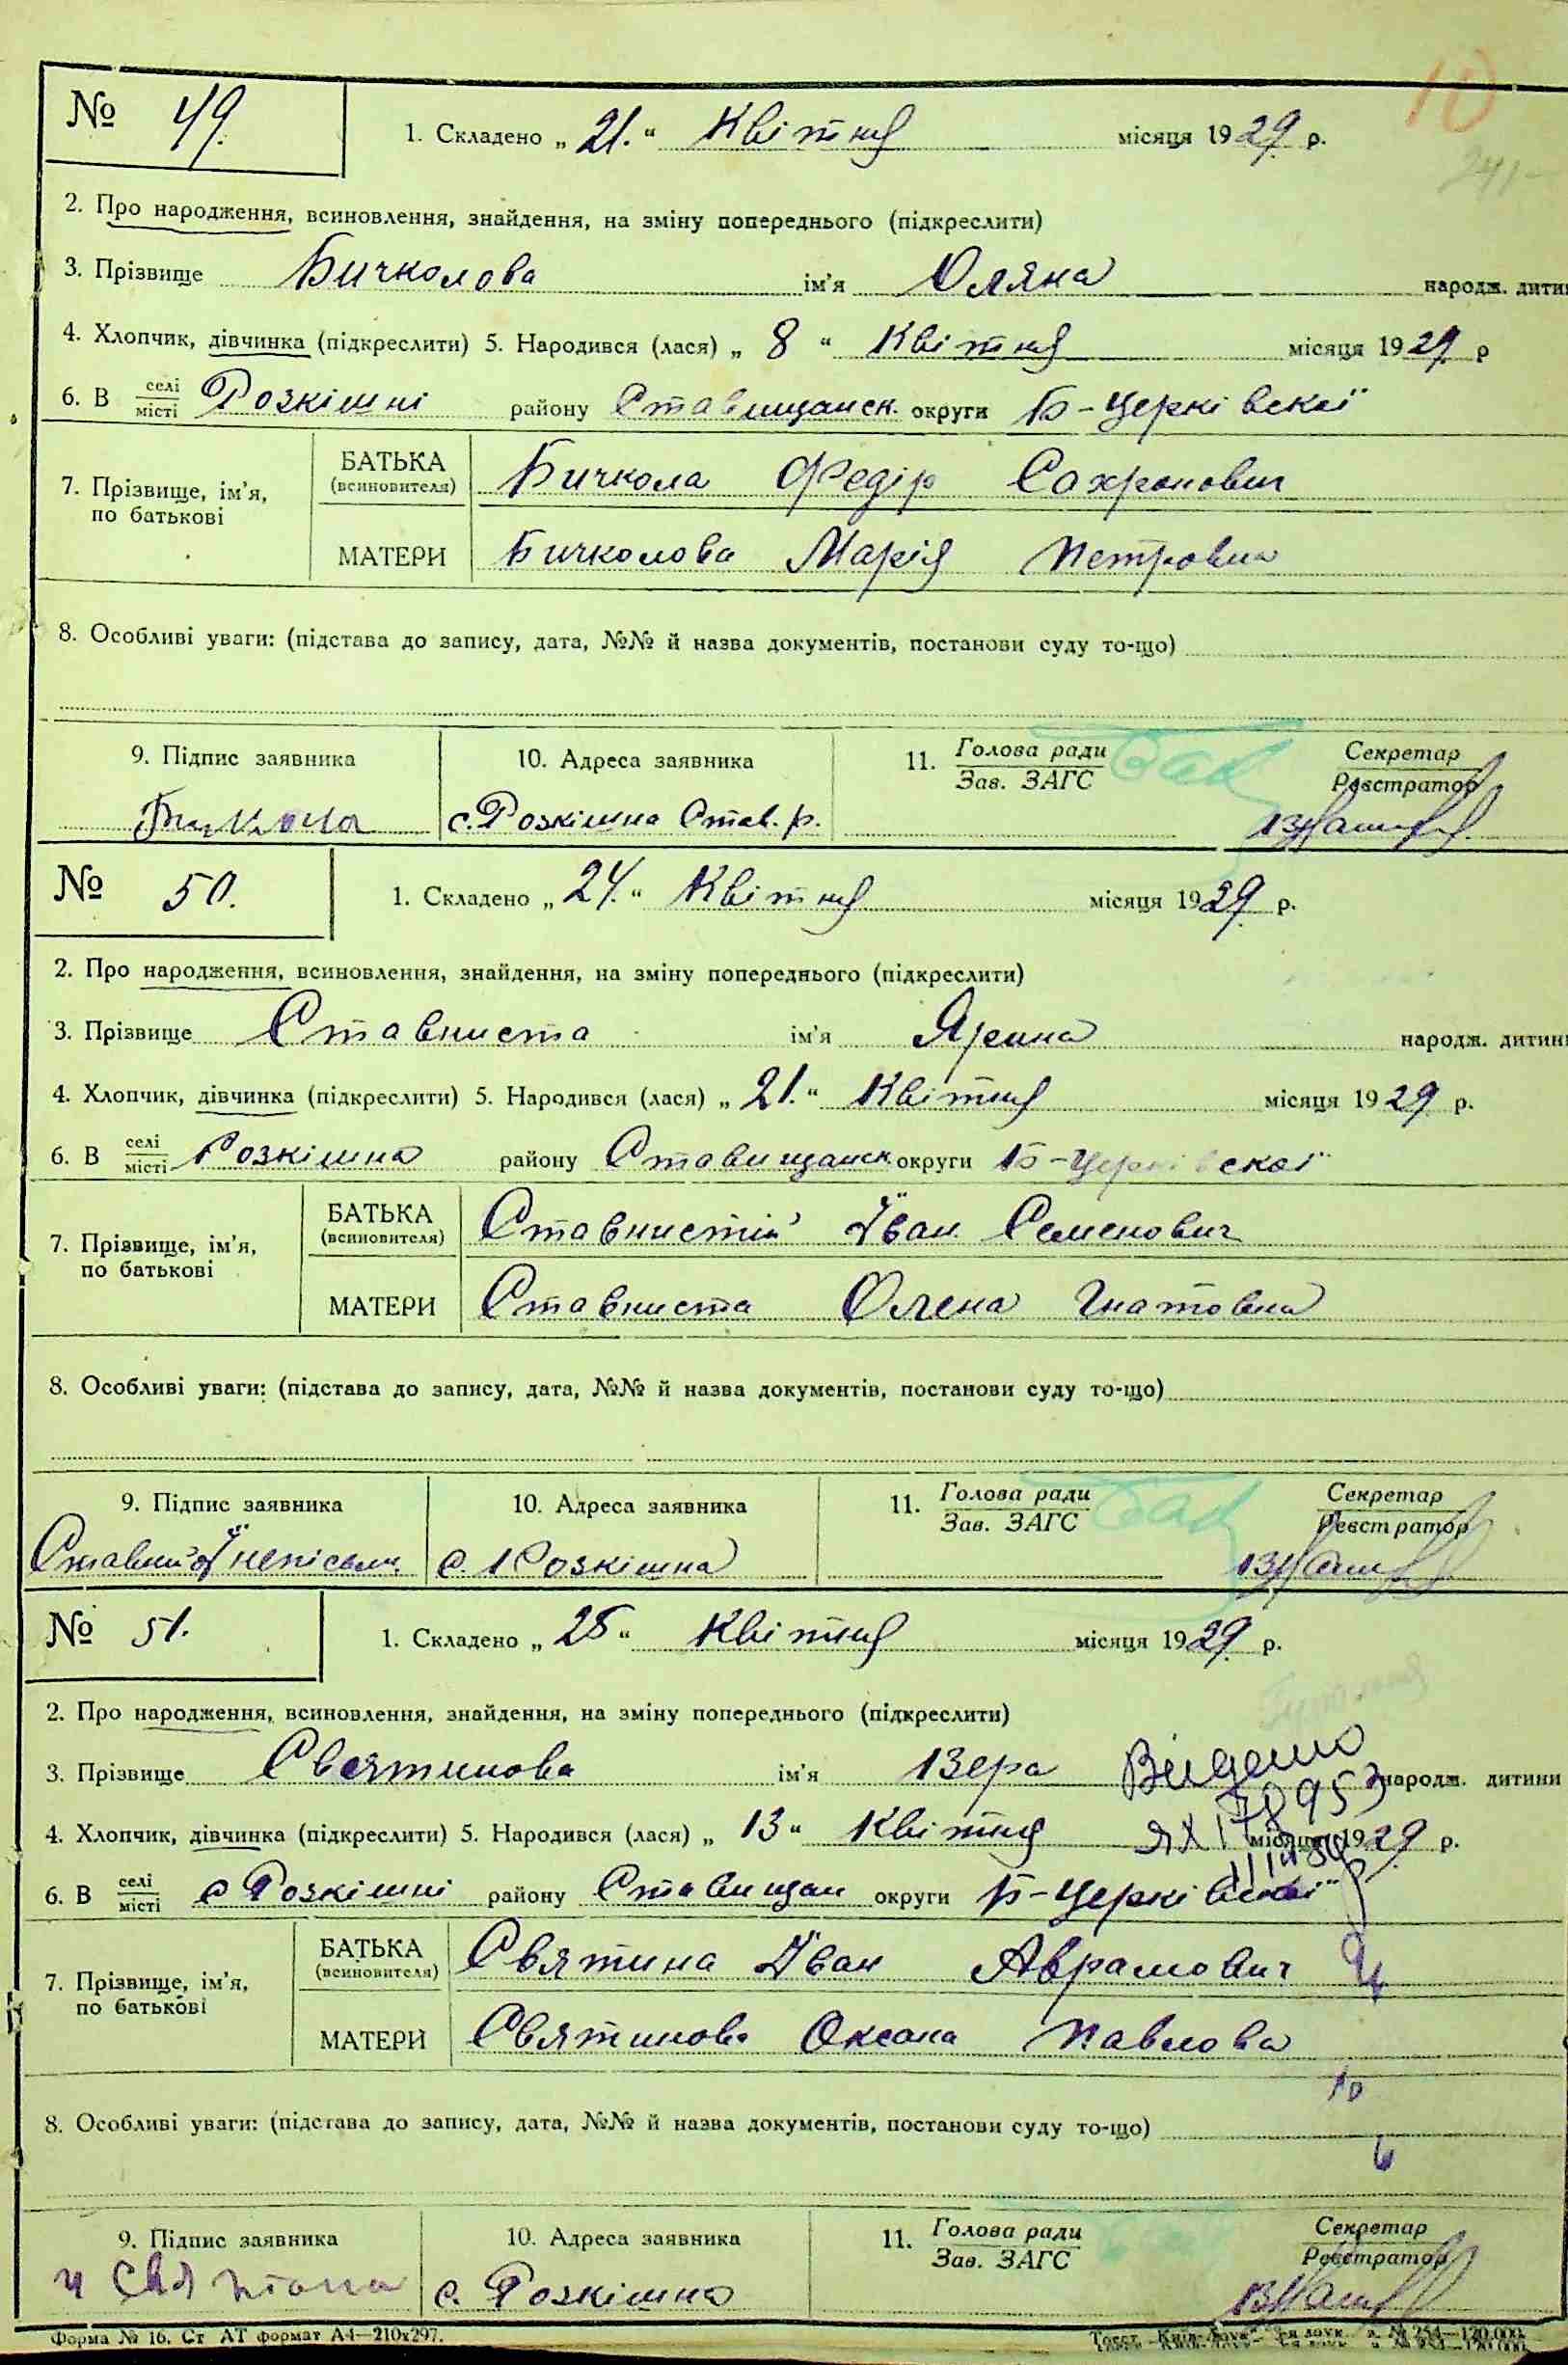 10
241-
№ 49. 1. Складено „21.“ Квітня місяця 1929. р.
2. Про народження, всиновлення, знайдення, на зміну попереднього (підкреслити)
3. Прізвище Бичколова ім'я Оляна народж. дити
4. Хлопчик, дівчинка (підкреслити) 5. Народився (лася) „8“ Квітня місяця 1929. р
6. В селі місті Розкішні району Ставищанск. округи Б-Церківскої
7. Прізвище, ім'я, по батькові
БАТЬКА (всиновителя) Бичкола Федір Сохронович
МАТЕРИ Бичколова Марія Петровна
8. Особливі уваги: (підстава до запису, дата, №№ й назва документів, постанови суду то-що)
9. Підпис заявника 10. Адреса заявника 11. Голова ради Зав. ЗАГС Секретар Реєстратор
Бичкола с. Розкішна Став. р.
№ 50. 1. Складено „24.“ Квітня місяця 1929. р.
2. Про народження, всиновлення, знайдення, на зміну попереднього (підкреслити)
3. Прізвище Ставниста ім'я Ярина народж. дитин
4. Хлопчик, дівчинка (підкреслити) 5. Народився (лася) „21.“ Квітня місяця 1929 р.
6. В селі місті Розкішна району Ставищанск округи Б-Церківскої
7. Прізвище, ім'я, по батькові
БАТЬКА (всиновителя) Ставнистій Іван Семенович
МАТЕРИ Ставниста Олена Гнатовна
8. Особливі уваги: (підстава до запису, дата, №№ й назва документів, постанови суду то-що)
9. Підпис заявника 10. Адреса заявника 11. Голова ради Зав. ЗАГС Секретар Реєстратор
с. Розкішна
№ 51. 1. Складено „25“ Квітня місяця 1929. р.
2. Про народження, всиновлення, знайдення, на зміну попереднього (підкреслити)
3. Прізвище Святинова ім'я Вера народж. дитини
Видано
4. Хлопчик, дівчинка (підкреслити) 5. Народився (лася) „13“ Квітня місяця 1929 р.
6. В селі місті с Розкішні району Ставищан округи Б-Церківскої
7. Прізвище, ім'я, по батькові
БАТЬКА (всиновителя) Святина Іван Аврамович
МАТЕРИ Святинова Оксана Павлова
8. Особливі уваги: (підстава до запису, дата, №№ й назва документів, постанови суду то-що)
9. Підпис заявника 10. Адреса заявника 11. Голова ради Зав. ЗАГС Секретар Реєстратор
с. Розкішна
Форма № 16. Ст АТ формат А4—210х297.